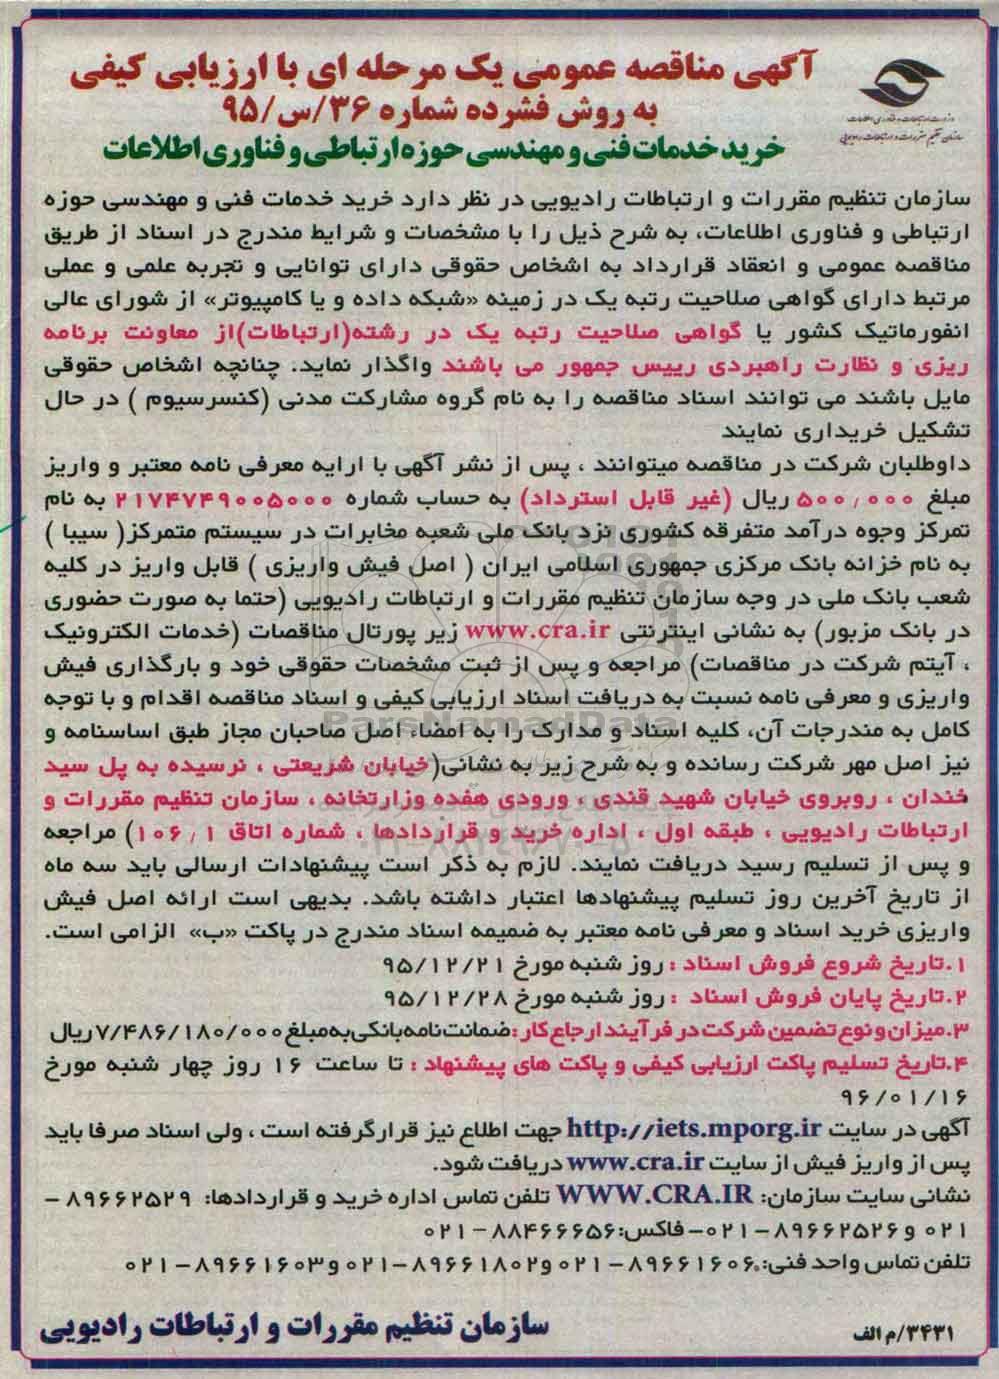 آگهی مناقصه عمومی یک مرحله ای با ارزیابی کیفی
به روش فشرده شماره ۳۶/س/۹۵
خرید خدمات فنی و مهندسی حوزه ارتباطی و فناوری اطلاعات
وزارت ارتباطات و فناوری اطلاعات
سازمان تنظیم مقررات و ارتباطات رادیویی
سازمان تنظیم مقررات و ارتباطات رادیویی در نظر دارد خرید خدمات فنی و مهندسی حوزه
ارتباطی و فناوری اطلاعات، به شرح ذیل را با مشخصات و شرایط مندرج در اسناد از طریق
مناقصه عمومی و انعقاد قرارداد به اشخاص حقوقی دارای توانایی و تجربه علمی و عملی
مرتبط دارای گواهی صلاحیت رتبه یک در زمینه «شبکه داده و یا کامپیوتر» از شورای عالی
انفورماتیک کشور یا گواهی صلاحیت رتبه یک در رشته(ارتباطات)از معاونت برنامه
ریزی و نظارت راهبردی رییس جمهور می باشند واگذار نماید. چنانچه اشخاص حقوقی
مایل باشند می توانند اسناد مناقصه را به نام گروه مشارکت مدنی (کنسرسیوم ) در حال
تشکیل خریداری نمایند
داوطلبان شرکت در مناقصه میتوانند ، پس از نشر آگهی با ارایه معرفی نامه معتبر و واریز
مبلغ ۵۰۰٫۰۰۰ ریال (غیر قابل استرداد) به حساب شماره ۲۱۷۴۷۴۹۰۰۵۰۰۰ به نام
تمرکز وجوه درآمد متفرقه کشوری نزد بانک ملی شعبه مخابرات در سیستم متمرکز( سیبا )
به نام خزانه بانک مرکزی جمهوری اسلامی ایران ( اصل فیش واریزی ) قابل واریز در کلیه
شعب بانک ملی در وجه سازمان تنظیم مقررات و ارتباطات رادیویی (حتما به صورت حضوری
در بانک مزبور) به نشانی اینترنتی www.cra.ir زیر پورتال مناقصات (خدمات الکترونیک
، آیتم شرکت در مناقصات) مراجعه و پس از ثبت مشخصات حقوقی خود و بارگذاری فیش
واریزی و معرفی نامه نسبت به دریافت اسناد ارزیابی کیفی و اسناد مناقصه اقدام و با توجه
کامل به مندرجات آن، کلیه اسناد و مدارک را به امضاء اصل صاحبان مجاز طبق اساسنامه و
نیز اصل مهر شرکت رسانده و به شرح زیر به نشانی(خیابان شریعتی ، نرسیده به پل سید
خندان ، روبروی خیابان شهید قندی ، ورودی هفده وزارتخانه ، سازمان تنظیم مقررات و
ارتباطات رادیویی ، طبقه اول ، اداره خرید و قراردادها ، شماره اتاق ۱۰۶٫۱) مراجعه
و پس از تسلیم رسید دریافت نمایند. لازم به ذکر است پیشنهادات ارسالی باید سه ماه
از تاریخ آخرین روز تسلیم پیشنهادها اعتبار داشته باشد. بدیهی است ارائه اصل فیش
واریزی خرید اسناد و معرفی نامه معتبر به ضمیمه اسناد مندرج در پاکت «ب» الزامی است.
۱.تاریخ شروع فروش اسناد : روز شنبه مورخ ۹۵/۱۲/۲۱
۲.تاریخ پایان فروش اسناد : روز شنبه مورخ ۹۵/۱۲/۲۸
۳.میزان و نوع تضمین شرکت در فرآیند ارجاع کار : ضمانت نامه بانکی به مبلغ ۷/۴۸۶/۱۸۰/۰۰۰ ریال
۴.تاریخ تسلیم پاکت ارزیابی کیفی و پاکت های پیشنهاد : تا ساعت ۱۶ روز چهار شنبه مورخ
۹۶/۰۱/۱۶
آگهی در سایت http://iets.mporg.ir جهت اطلاع نیز قرارگرفته است ، ولی اسناد صرفا باید
پس از واریز فیش از سایت www.cra.ir دریافت شود.
نشانی سایت سازمان: WWW.CRA.IR تلفن تماس اداره خرید و قراردادها: ۸۹۶۶۲۵۲۹ -
۰۲۱ و ۸۹۶۶۲۵۲۶-۰۲۱- فاکس:۸۸۴۶۶۶۵۶-۰۲۱
تلفن تماس واحد فنی: ۸۹۶۶۱۶۰۶-۰۲۱ و ۸۹۶۶۱۸۰۲-۰۲۱ و ۸۹۶۶۱۶۰۳-۰۲۱
سازمان تنظیم مقررات و ارتباطات رادیویی
۳۴۳۱/م الف
ParsNamadData